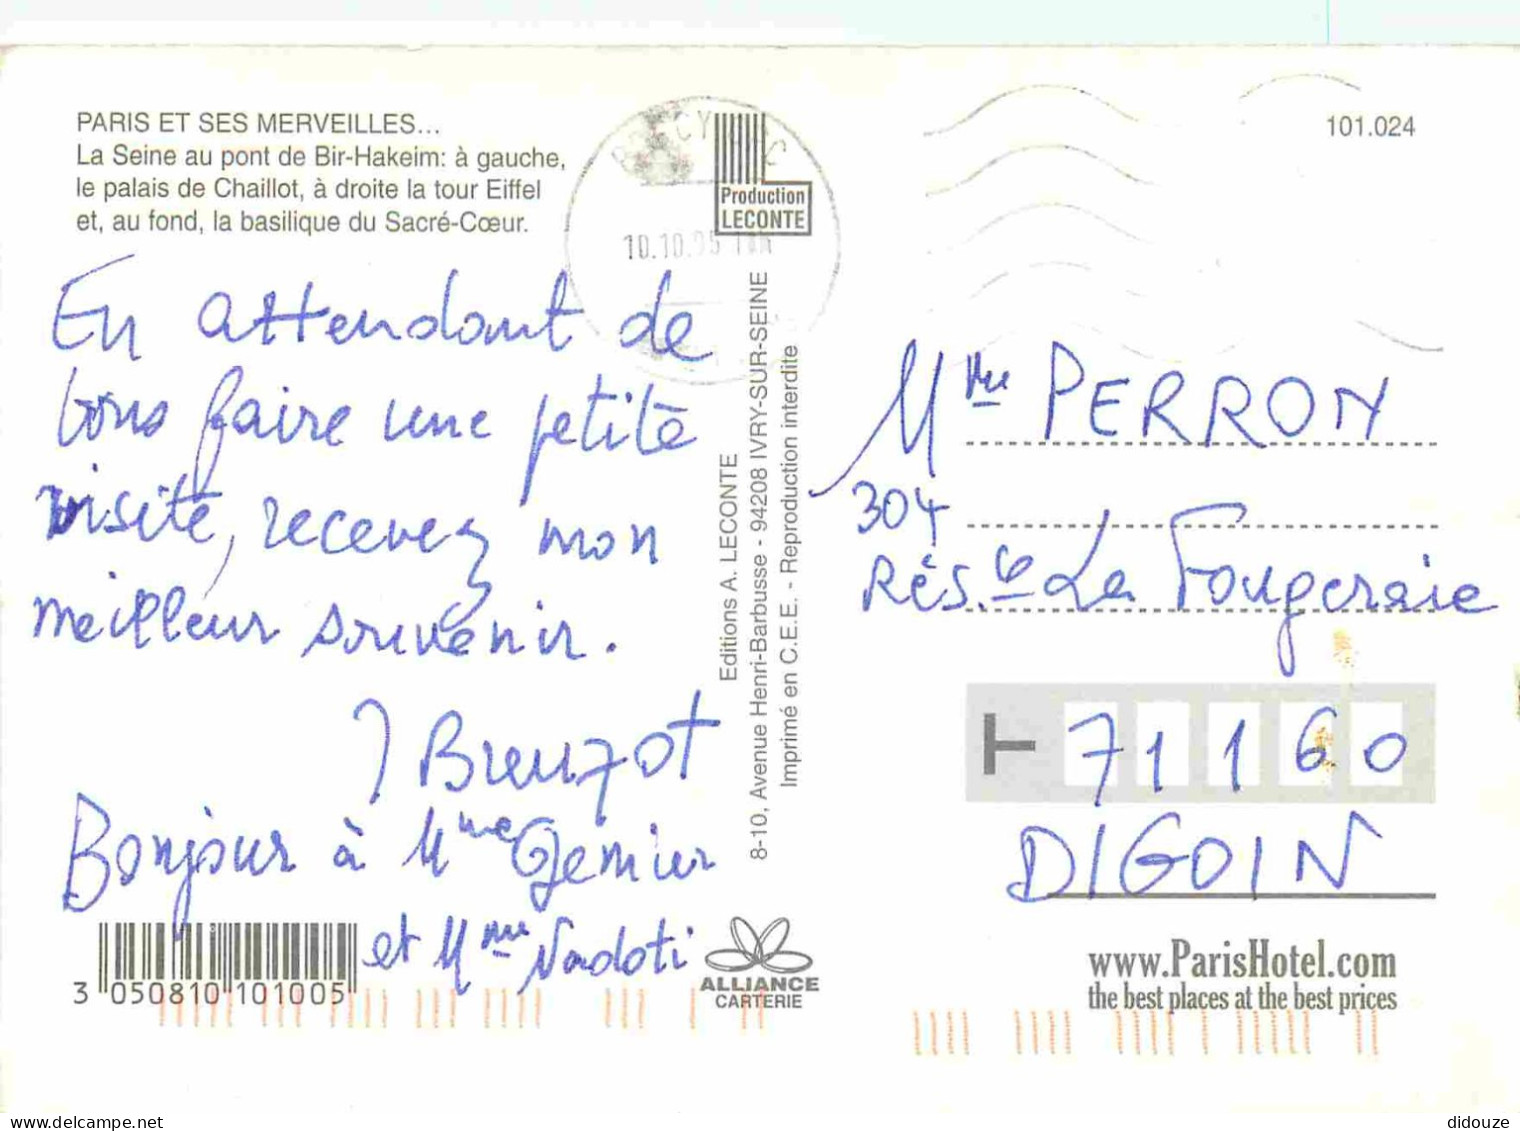 PARIS ET SES MERVEILLES...
La Seine au pont de Bir-Hakeim: à gauche,
le palais de Chaillot, à droite la tour Eiffel
et, au fond, la basilique du Sacré-Cœur.
Production
LECONTE
101.024
10.10.95
En attendant de
vous faire une petite
visite, recevez mon
meilleur souvenir.
J Breuzot
Bonjour à Mme Genier
et Mme Nadoti
3 050810 101005
Editions A. LECONTE
8-10, Avenue Henri-Barbusse - 94208 IVRY-SUR-SEINE
Imprimé en C.E.E. - Reproduction interdite
ALLIANCE
CARTERIE
Mme PERRON
304
Rés.ce La Fougeraie
71160
DIGOIN
www.ParisHotel.com
the best places at the best prices
delcampe.net
didouze